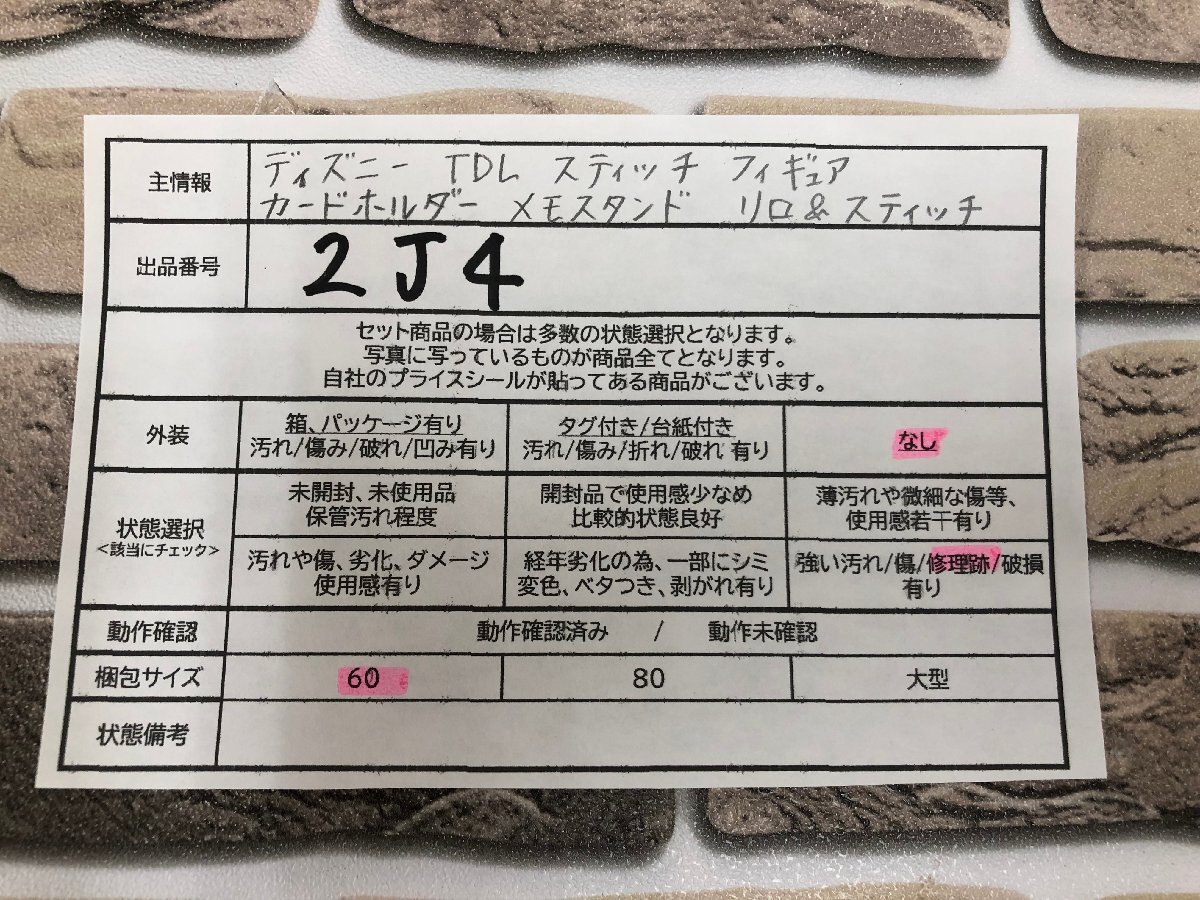 主情報
ディズニー TDL スティッチ フィギュア
カードホルダー メモスタンド リロ&スティッチ
出品番号
2J4
セット商品の場合は多数の状態選択となります。
写真に写っているものが商品全てとなります。
自社のプライスシールが貼ってある商品がございます。
外装
箱、パッケージ有り
汚れ/傷み/破れ/凹み有り
タグ付き/台紙付き
汚れ/傷み/折れ/破れ 有り
なし
状態選択
<該当にチェック>
未開封、未使用品
保管汚れ程度
開封品で使用感少なめ
比較的状態良好
薄汚れや微細な傷等、
使用感若干有り
汚れや傷、劣化、ダメージ
使用感有り
経年劣化の為、一部にシミ
変色、ベタつき、剥がれ有り
強い汚れ/傷/修理跡/破損
有り
動作確認
動作確認済み / 動作未確認
梱包サイズ
60
80
大型
状態備考